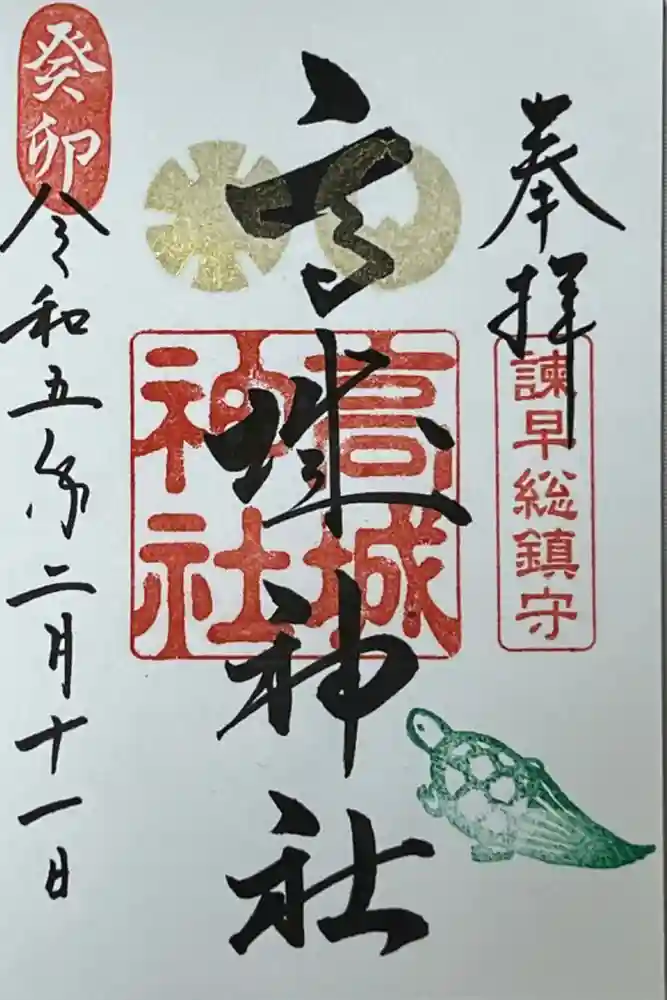 奉拝
諫早総鎮守
高城神社
高城
神社
令和五年二月十一日
癸卯